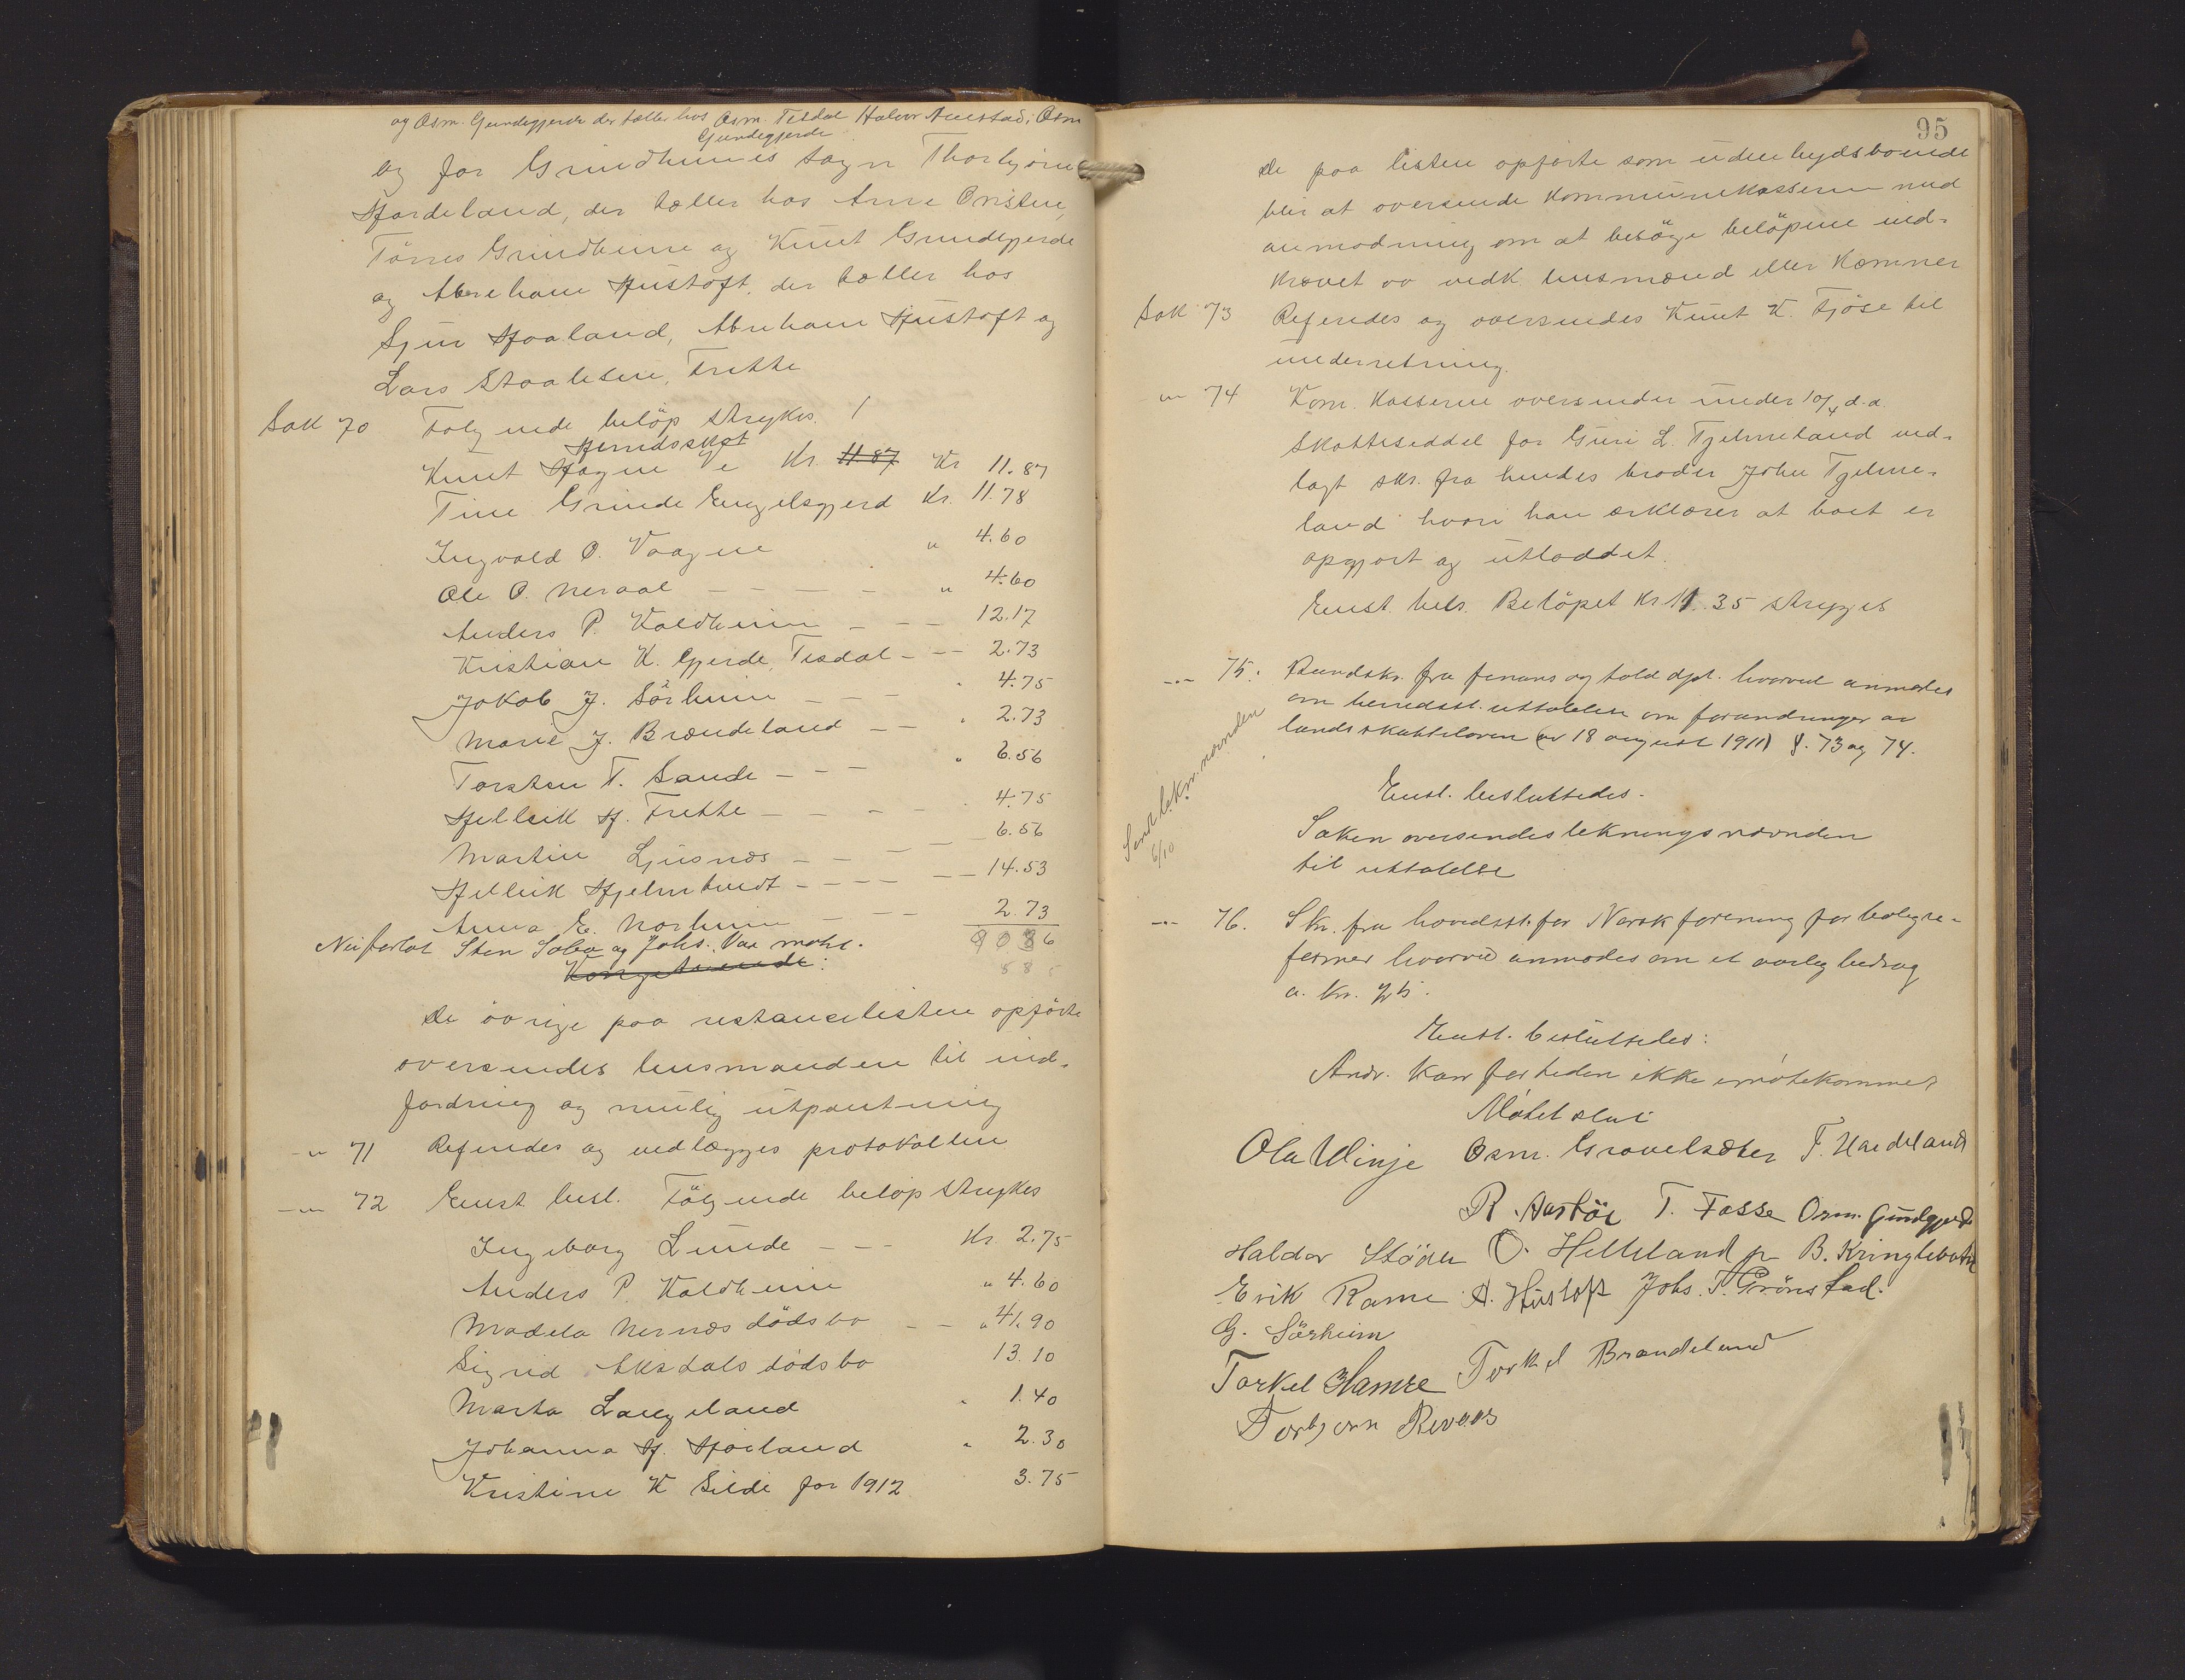 og Osm. Gundegjerde der tæller hos Osm. Tesdal Halvor Aurstad, Osm
Gundegjerde
og for Grindheims sogn Thorbjørn
Hardeland, der tæller hos Arne Øristen,
Törres Grindheim og Knut Grundegjerde
og Abreham Hustoft, der tæller hos
Sjur Haaland, Abraham Hustoft og
Lars Staalesen, Frette
Sak 70 Følgende beløp strykes.
Herredsskat
Knut Hagne Kr. 11.87 Kr 11.87
Tine Grinde Engelsgjerd Kr. 11.78
Ingvald O. Vaagne " 4.60
Ole O. Neraal - - - - " 4.60
Anders P. Kaldheim - - - 12.17
Kristian K. Gjerde, Tesdal - - - 2.73
Jakob J. Sörheim - - - 4.75
Marie J. Brændeland - - " 2.73
Torsten T. Sande - - - " 6.56
Helleik H. Frette - - - 4.75
Martin Ljusnes - - - - 6.56
Helleik Hjelmtveit - - - - - 14.53
Anna E. Norheim - - - 2.73
Nei forlot Sten Sabø og Johs. Vaa møtet.
De övrige paa restancelisten opförte
oversendes lensmanden til ind-
fordring og mulig utpantning
-"- 71 Referedes og vedlægges protokollen
-"- 72 Enst. besl. Fölgende belöp strykes
Ingeborg Lunde - - - Kr. 2.75
Anders P. Kaldheim " 4.60
Madela Nernes dödsbo - - " 41.90
Sigrid Aksdals dödsbo 13.10
Marta Langeland " 1.40
Johanna H. Höiland " 2.30
Kristine K Silde for 1912 3.75
95
De paa listen opförte som udenbygdsboende
blir at oversende kommunekasseren med
anmodning om at besöge belöpene ind-
krævet av vedk. lensmænd eller kæmner
Sak 73 Referedes og oversendes Knut K. Fjöse til
underretning.
-"- 74 Kom. kasserne oversender under 10/4 d.a.
skatteseddel for Guri L. Tjelmeland ved-
lagt skr. fra hendes broder John Tjelme-
land hvori han erklærer at boet er
opgjort og utloddet.
Enst. bels. Belöpet kr 11.35 stryges
-"- 75. Rundskr. fra finans og told dpt. hvorved anmodes
om herredsst. uttalelse om forandringer av
landsskatteloven (av 18 august 1911) §. 73 og 74.
Send likn. nevnden
6/10
Enst. besluttedes.
Saken oversendes lekningsnævnden
til uttalelse
-"- 76. Skr. fra hovedsst. for Norsk forening for boligre-
former hvorved anmodes om et aarlig bedrag
a. kr. 75.
Enst. besluttedes:
Andr. kan for tiden ikke imøtekommes
Møtet slut
Ola Vinje Osm. Gravelsæter T. Hardeland
R. Aartöe T. Fosse Osm. Gundegjerde
Haldor Stöen O. Helleland jr B. Kringlebotn
Erik Rame A. Hustoft Johs. T. Grönstad.
G. Sörheim
Torkel Hamre Torkel Brændeland
Torbjørn Revaas